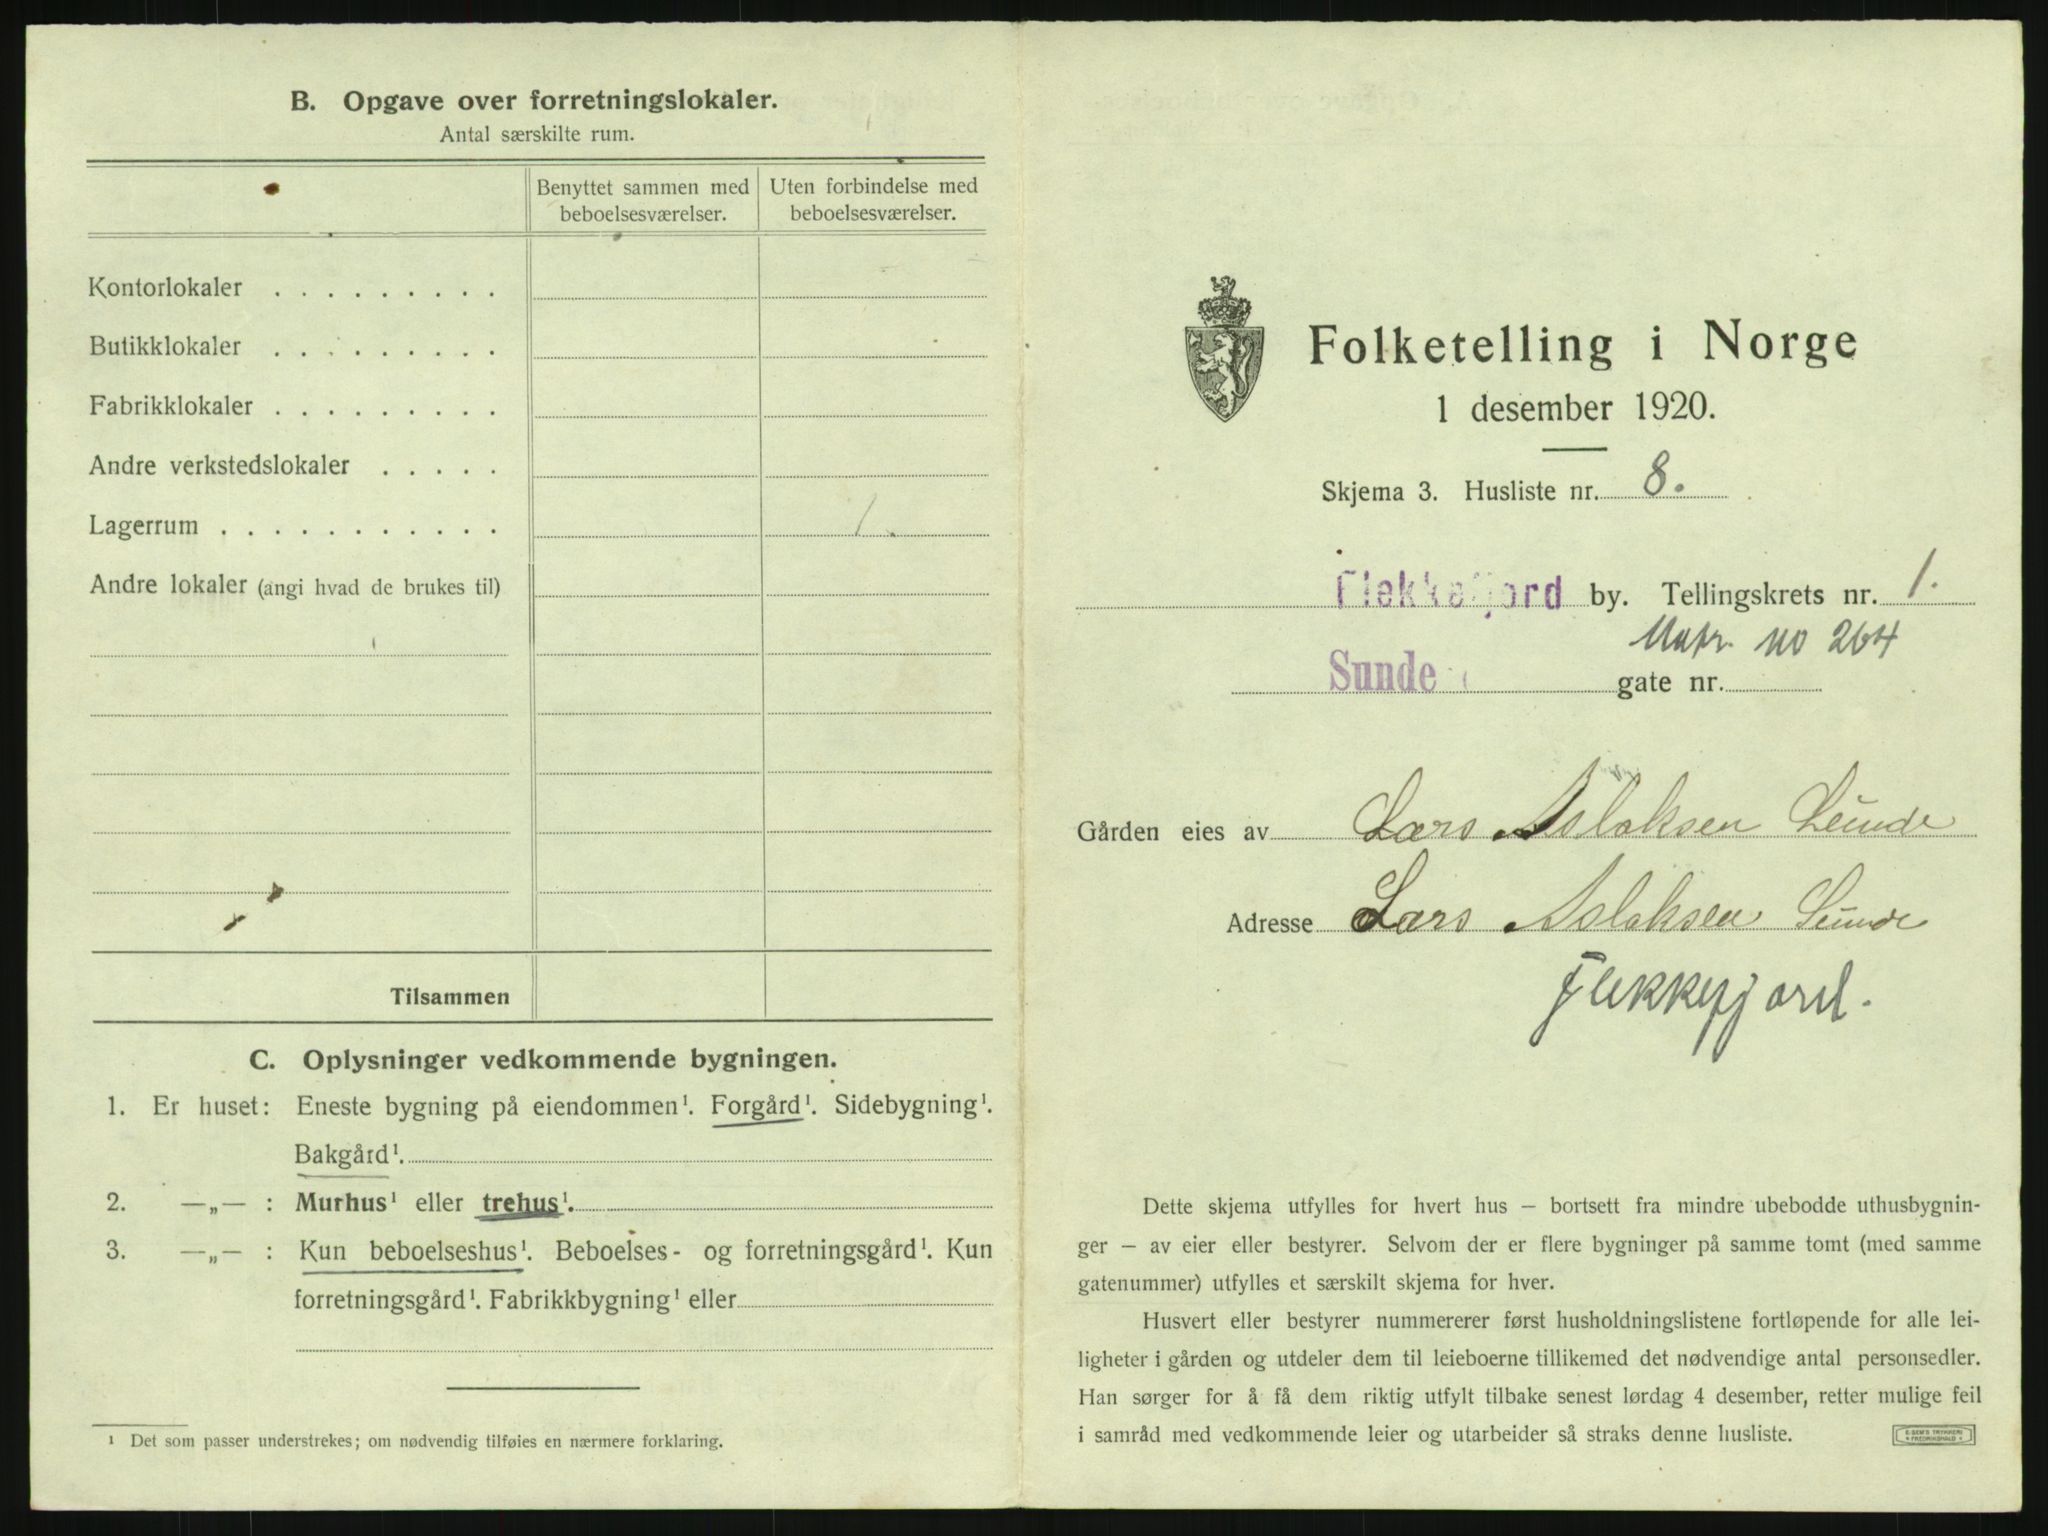 B. Opgave over forretningslokaler.
Antal særskilte rum.
Benyttet sammen med beboelsesværelser.
Uten forbindelse med beboelsesværelser.
Kontorlokaler . . . . . . . . .
Butikklokaler . . . . . . . . .
Fabrikklokaler . . . . . . . . .
Andre verkstedslokaler . . . . .
Lagerrum . . . . . . . . . . . 1.
Andre lokaler (angi hvad de brukes til)
Tilsammen
C. Oplysninger vedkommende bygningen.
1. Er huset: Eneste bygning på eiendommen¹. Forgård¹. Sidebygning¹.
Bakgård¹.
2. —„— : Murhus¹ eller trehus¹.
3. —„— : Kun beboelseshus¹. Beboelses- og forretningsgård¹. Kun
forretningsgård¹. Fabrikkbygning¹ eller
¹ Det som passer understrekes; om nødvendig tilføies en nærmere forklaring.
Folketelling i Norge
1 desember 1920.
Skjema 3. Husliste nr. 8.
Flekkefjord by. Tellingskrets nr. 1.
Matr. no 264
Sunde gate nr.
Gården eies av Lars Aslaksen Sunde
Adresse Lars Aslaksen Sunde
Flekkefjord.
Dette skjema utfylles for hvert hus – bortsett fra mindre ubebodde uthusbygnin-
ger – av eier eller bestyrer. Selvom der er flere bygninger på samme tomt (med samme
gatenummer) utfylles et særskilt skjema for hver.
Husvert eller bestyrer nummererer først husholdningslistene fortløpende for alle lei-
ligheter i gården og utdeler dem til leieboerne tillikemed det nødvendige antal personsedler.
Han sørger for å få dem riktig utfylt tilbake senest lørdag 4 desember, retter mulige feil
i samråd med vedkommende leier og utarbeider så straks denne husliste.
E. SEM'S TRYKKERI
FREDRIKSHALD